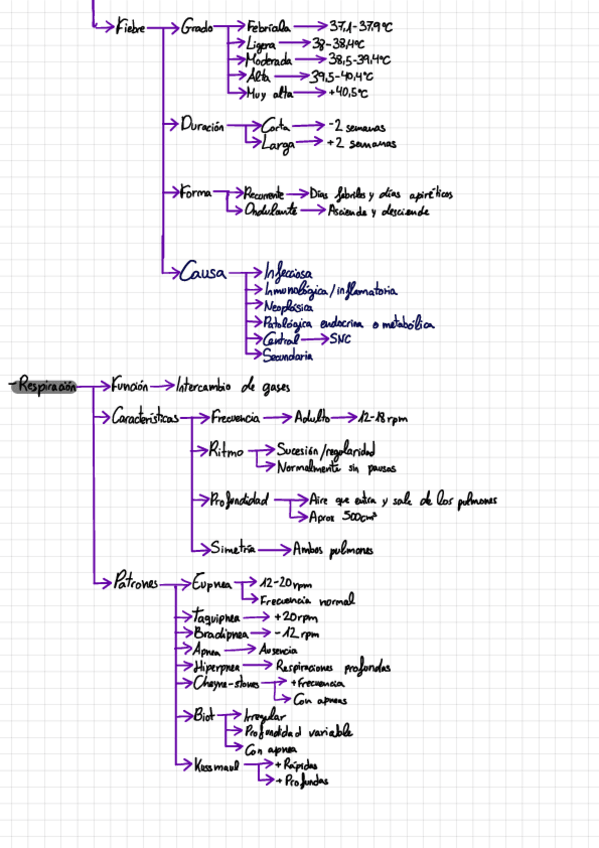 Fiebre → Grado → Febrícula → 37,1-37,9ºC
Ligera → 38-38,4ºC
Moderada → 38,5-39,4ºC
Alta → 39,5-40,4ºC
Muy alta → +40,5ºC
Duración → Corta → -2 semanas
Larga → +2 semanas
Forma → Recurrente → Días febriles y días apiréticos
Ondulante → Asciende y desciende
Causa → Infecciosa
Inmunológica/inflamatoria
Neoplásica
Patológica endocrina o metabólica
Central → SNC
Secundaria
-Respiración → Función → Intercambio de gases
Características → Frecuencia → Adulto → 12-18 rpm
Ritmo → Sucesión/regularidad
Normalmente sin pausas
Profundidad → Aire que entra y sale de los pulmones
Aprox 500cm³
Simetría → Ambos pulmones
Patrones → Eupnea → 12-20 rpm
Frecuencia normal
Taquipnea → +20 rpm
Bradipnea → -12 rpm
Apnea → Ausencia
Hiperpnea → Respiraciones profundas
Cheyne-stones → +Frecuencia
Con apneas
Biot → Irregular
Profundidad variable
Con apnea
Kussmaul → +Rápidas
+Profundas